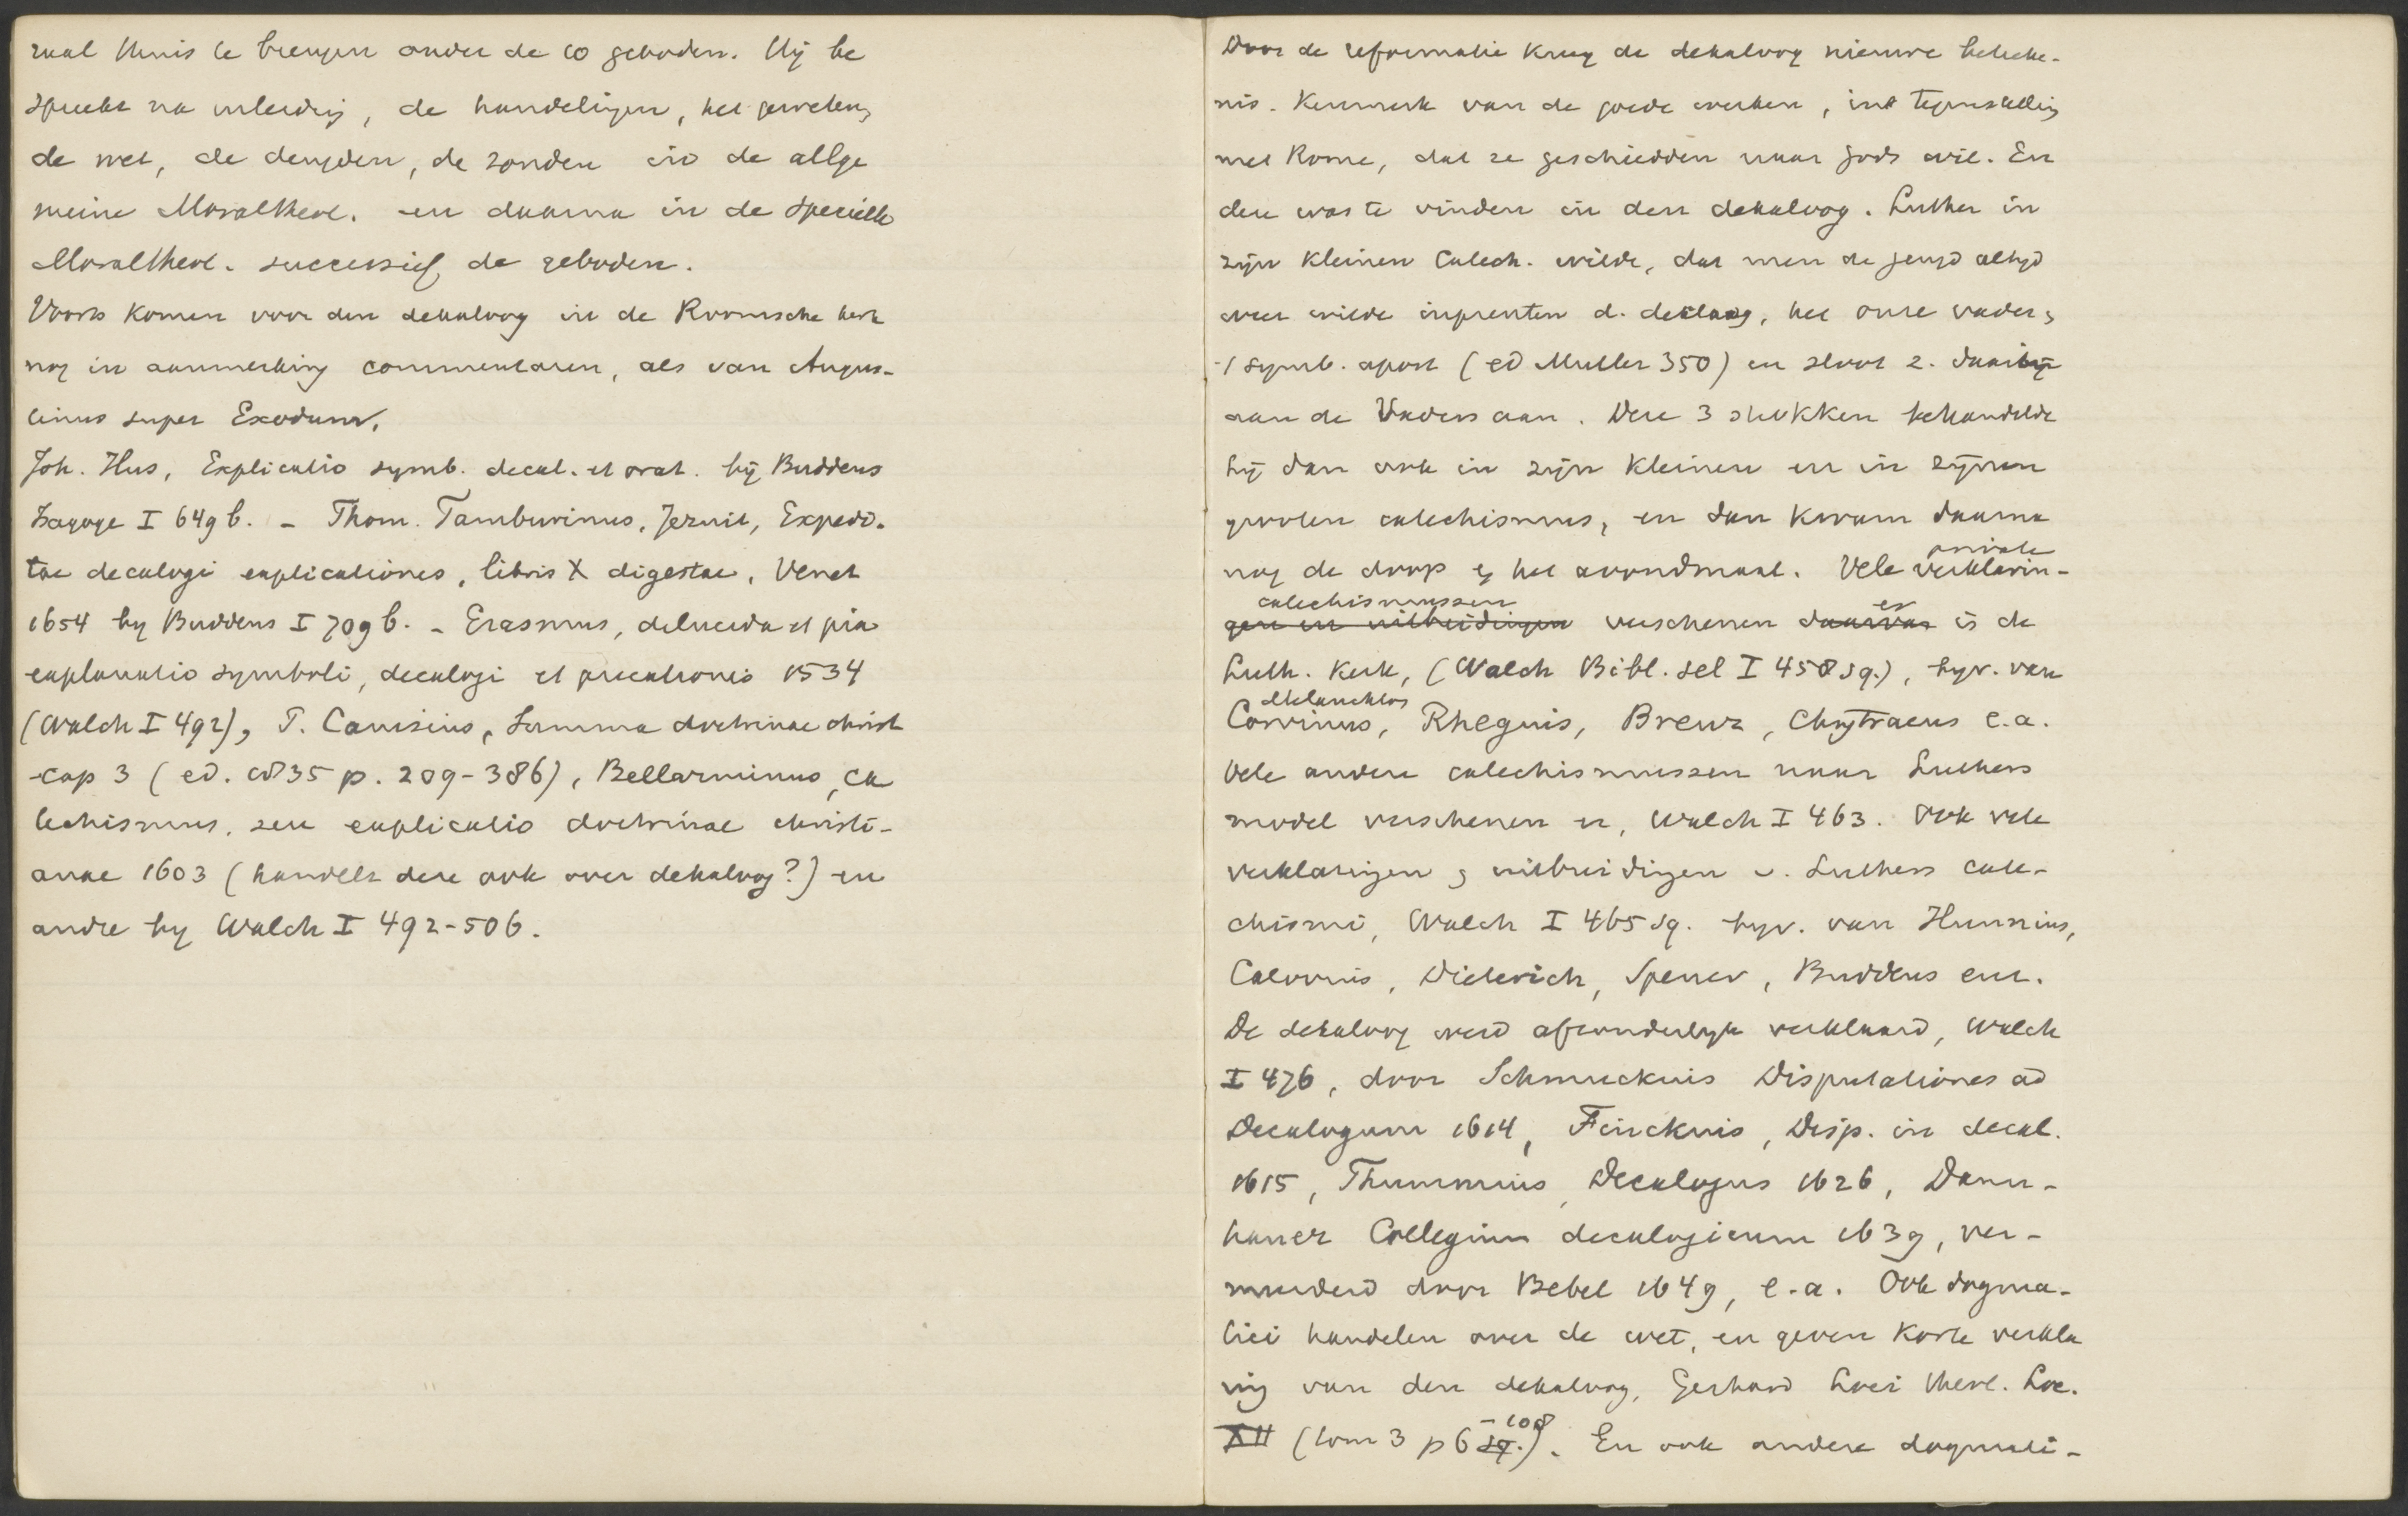 zaal thuis te brengen onder de 10 geboden. Hij be
spreekt na inleidig, de handelingen, het geweten,
de wet, de deugden, de zonden in de allge
meine Moraltheol. en daarna in de specielle
Moraltheol. successief de geboden.
Voorts komen voor den dekaloog in de Roomsche kerk
nog in aanmerking commentaren, als van Augus-
tinus super Exodum.
Joh. Hus, Explicatio symb. decal. et orat. bij Buddeus
Isagoge I 649 b. - Thom. Tamburinus, Jezuit, Expedi-
tae decalogi explicationes, libris X digestae, Venet
1654 by Buddeus I 709 b. - Erasmus, dilucida et pia
explanatio symboli, decalogi et precationis 1534
(Walch I 492), P. Canisius, Summa doctrinae christ
cap 3 (ed. 1835 p. 209-386), Bellarminus, ca
techismus, seu explicatio doctrinae christi-
anae 1603 (handelt deze ook over dekaloog?) en
andre by Walch I 492-506.
Door de reformatie kreeg de dekaloog nieuwe beteeke-
nis. Kenmerk van de goede werken, in tegenstelling
met Rome, dat ze geschiedden naar Gods wil. En
deze was te vinden in den dekaloog. Luther in
zijn kleinen Catech. wilde, dat men de jeugd altijd
weer wilde inprenten d. decaloog, het onze vader,
't symb. apost (ed Muller 350) en sloot z. daarbij
aan de Vaders aan. Deze 3 stukken behandelde
hij dan ook in zijn kleinen en in zijnen
grooten catechismus, en dan kwam daarna
nog de doop en het avondmaal. Vele private verklarin-
gen en uitbreidingen catechismussen verschenen daarvan er in de
Luth. Kerk, (Walch Bibl. sel I 458 sq.), byv. van
Melanchton Corvinus, Rhegius, Brenz, Chytraeus e.a.
Vele andere catechismussen naar Luthers
model verschenen er, Walch I 463. Ook vele
verklaringen en uitbreidingen v. Luthers cate-
chismi, Walch I 465 sq. byv. van Hunnius,
Calovius, Dieterich, Spener, Buddeus enz.
De dekaloog werd afzonderlyk verklaard, Walch
I 476, door Schmuckius Disputationes ad
Decalogum 1614, Finckius, Disp. in decal.
1615, Thummius, Decalogus 1626, Dann-
hauer Collegium decalogicum 1639, ver-
meerderd door Bebel 1649, e.a. Ook dogma-
tici handelen over de wet, en geven korte verkla
ring van den dekaloog, Gerhard Loci theol. Loc.
XII (tom 3 p 6 sq. -108). En ook andere dogmati-